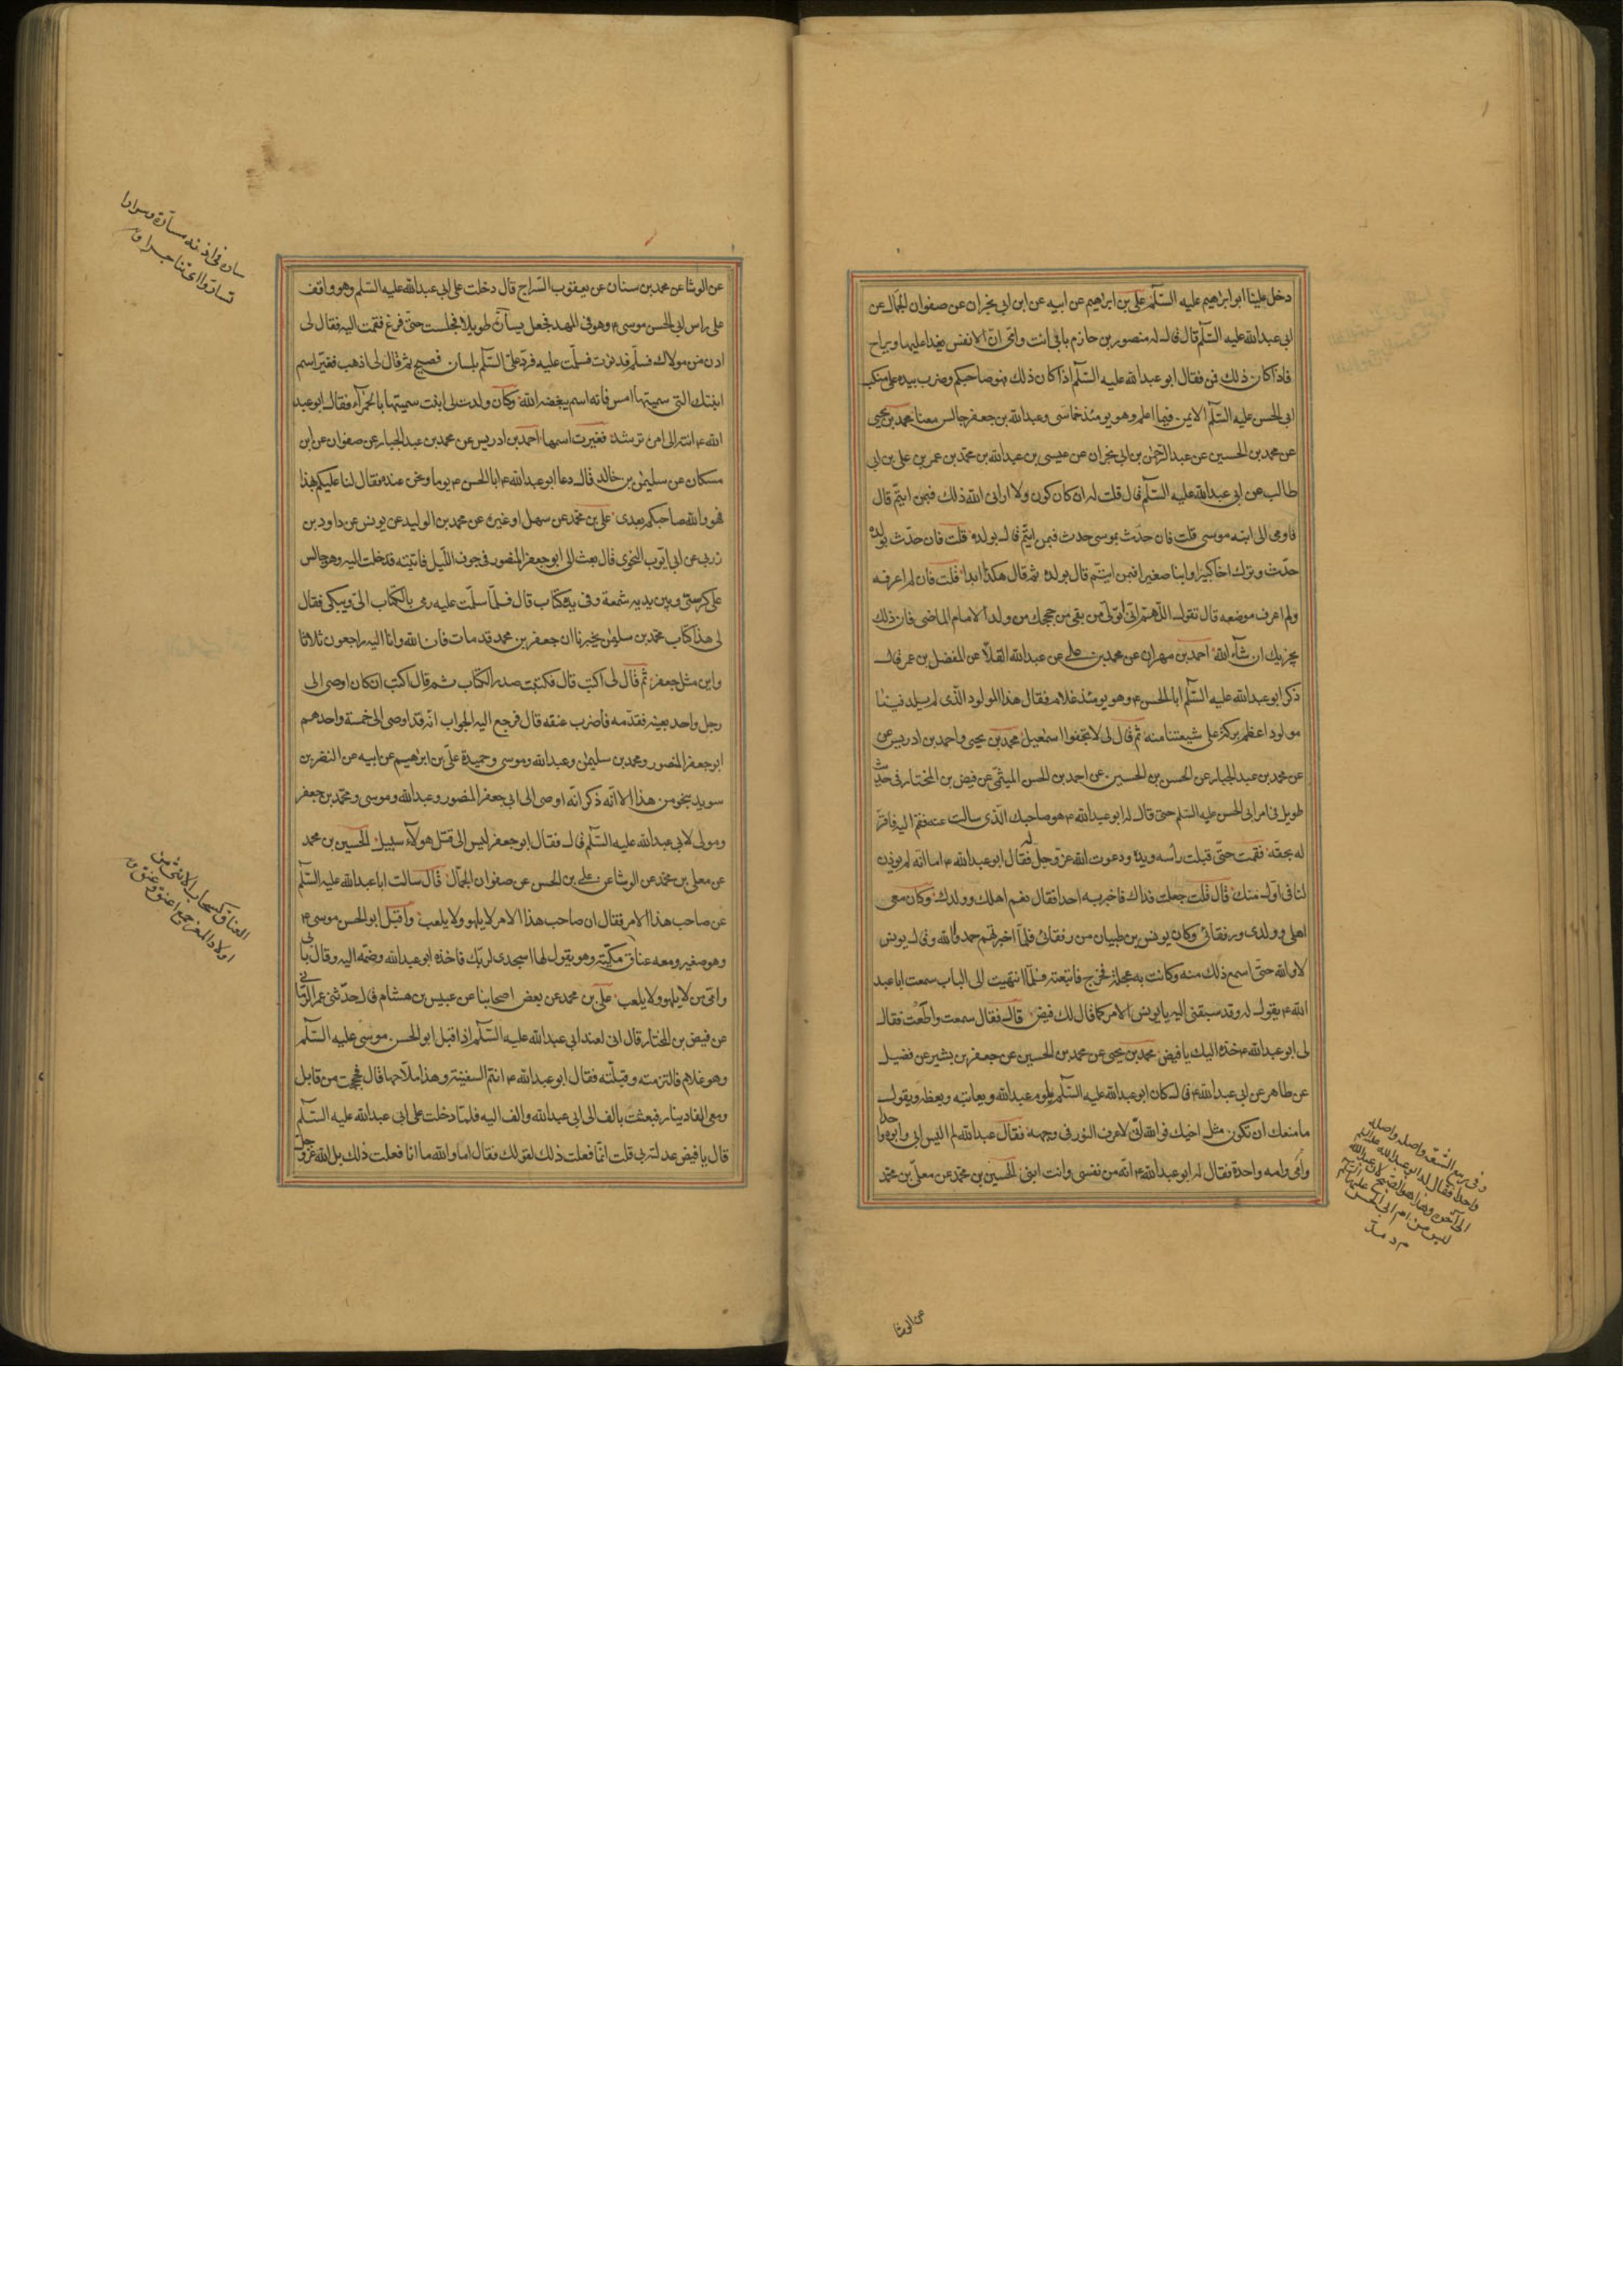 دخل علينا ابو ابراهيم عليه السّلم علي بن ابراهيم عن ابيه عن ابن ابي نجران عن صفوان الجمّال عن
ابي عبدالله عليه السّلم قال قال له منصور بن حازم بابي انت وامّي انّ الانفس يغدا عليها ويراح
فاذا كان ذلك فمن فقال ابو عبدالله عليه السّلم اذا كان ذلك فهو صاحبكم وضرب بيده على منكب
ابي الحسن عليه السّلم الايمن فيما اعلم وهو يومئذ خماسي وعبدالله بن جعفر جالس معنا محمد بن يحيى
عن محمد بن الحسين عن عبدالرّحمن بن ابي نجران عن عيسى بن عبدالله بن محمّد بن عمر بن علي بن ابي
طالب عن ابي عبدالله عليه السّلم قال قلت له ان كان كون ولا اراني الله ذلك فبمن ائتمّ قال
فاومى الى ابنه موسى قلت فان حدث بموسى حدث فبمن ائتمّ قال بولده قلت فان حدث بولده
حدث وترك اخا كبيرا وابنا صغيرا فبمن ائتم قال بولده ثم قال هكذا ابدا قلت فان لم اعرفه
ولم اعرف موضعه قال تقول اللّهمّ انّي اتولّى من بقي من حججك من ولد الامام الماضي فان ذلك
يجزيك ان شآء الله احمد بن مهران عن محمد بن علي عن عبدالله القلّا عن المفضل بن عمر قال
ذكر ابو عبدالله عليه السّلم ابا الحسن ع وهو يومئذ غلام فقال هذا المولود الّذي لم يولد فينا
مولود اعظم بركة على شيعتنا منه ثم قال لي لا تجفوا اسمعيل محمد بن يحيى واحمد بن ادريس عن
عن محمد بن عبد الجبار عن الحسن بن الحسين عن احمد بن الحسن الميثمي عن فيض بن المختار في حديث
طويل في امر ابي الحسن عليه السّلم حتى قال له ابو عبدالله ع هو صاحبك الّذي سالت عنه فقم اليه فاقرّ
له بحقّه فقمت حتّى قبلت رأسه ويده ودعوت الله عزّ وجلّ له فقال ابو عبدالله ع اما انّه لم يوذن
لنا في اول منك قال قلت جعلت فداك فاخبر به احدا فقال نعم اهلك وولدك وكان معي
اهلي وولدي ورفقائي وكان يونس بن ظبيان من رفقائي فلمّا اخبرتهم حمدوا الله وقال يونس
لا والله حتّى اسمع ذلك منه وكانت به عجلة فخرج فاتبعته فلمّا انتهيت الى الباب سمعت ابا عبد
الله ع يقول له وقد سبقني اليه يا يونس الامر كما قال لك فيض قال فقال سمعت واطعت فقال
لي ابو عبدالله ع خذه اليك يا فيض محمد بن يحيى عن محمد بن الحسين عن جعفر بن بشير عن فضيل
عن طاهر عن ابي عبدالله ع قال كان ابو عبدالله عليه السّلم يلوم عبدالله ويعاتبه ويعظه ويقول
ما منعك ان تكون مثل اخيك فوالله انّي لاعرف النور في وجهه فقال عبدالله لم اليس ابي وابوه واحدا
وامّي وامه واحدة فقال له ابو عبدالله ع انّه من نفسي وانت ابني الحسين بن محمّد عن معلّى بن محمّد
عن الوشا
عن الوشا عن محمد بن سنان عن يعقوب السّراج قال دخلت على ابي عبدالله عليه السّلم وهو واقف
على راس ابي الحسن موسى ع وهو في المهد فجعل يسآرّه طويلا فجلست حتى فرغ فقمت اليه فقال لي
ادن من مولاك فسلّم فدنوت فسلّمت عليه فردّ عليّ السّلم بلسان فصيح ثم قال لي اذهب فغيّر اسم
ابنتك التي سمّيتها امس فانه اسم يبغضه الله وكان ولدت لي ابنت سميتها بالحمرآء فقال ابو عبد
الله ع انته الى امره ترشد فغيرت اسمها احمد بن ادريس عن محمد بن عبد الجبار عن صفوان عن ابن
مسكان عن سليمن بن خالد قال دعا ابو عبدالله ع ابا الحسن ع يوما ونحن عنده فقال لنا عليكم بهذا
فهو والله صاحبكم بعدي علي بن محمّد عن سهل او غيره عن محمد بن الوليد عن يونس عن داود بن
زربي عن ابي ايّوب النحوي قال بعث الي ابو جعفر المنصور في جوف اللّيل فاتيته فدخلت اليه وهو جالس
على كرسيّ وبين يديه شمعة وفي يده كتاب قال فلمّا سلّمت عليه رمى بالكتاب اليّ وهو يبكي فقال
لي هذا كتاب محمّد بن سليمن يخبرنا ان جعفر بن محمد قد مات فانا لله وانا اليه راجعون ثلاثا
واين مثل جعفر ثمّ قال لي اكتب قال فكتبت صدر الكتاب ثم قال اكتب ان كان اوصى الى
رجل واحد بعينه فقدّمه فاضرب عنقه قال فرجع اليه الجواب انّه قد اوصى الى خمسة واحدهم
ابو جعفر المنصور ومحمد بن سليمن وعبدالله وموسى وحميدة علي بن ابرهيم عن ابيه عن النضر بن
سويد بنحو من هذا الا انّه ذكر انّه اوصى الى ابي جعفر المنصور وعبدالله وموسى ومحمّد بن جعفر
ومولى لابي عبدالله عليه السّلم قال فقال ابو جعفر ليس الى قتل هولآء سبيل الحسين بن محمد
عن معلى بن محمّد عن الوشا عن علي بن الحسن عن صفوان الجمّال قال سالت ابا عبدالله عليه السّلم
عن صاحب هذا الامر فقال ان صاحب هذا الامر لا يلهو ولا يلعب واقبل ابو الحسن موسى ع
وهو صغير ومعه عناق مكيّة وهو يقول لها اسجدي لربّك فاخذه ابو عبدالله وضمّه اليه وقال بابي
وامّي من لا يلهو ولا يلعب علي بن محمد عن بعض اصحابنا عن عبيس بن هشام قال حدّثني عمر الرمّاني
عن فيض بن المختار قال اني لعند ابي عبدالله عليه السّلم اذ اقبل ابو الحسن موسى عليه السّلم
وهو غلام فالتزمته وقبلته فقال ابو عبدالله ع انتم السفينة وهذا ملّاحها قال فحججت من قابل
ومعي الفا دينار فبعثت بالف الى ابي عبدالله والف اليه فلمّا دخلت على ابي عبدالله عليه السّلم
قال يا فيض عدلته بي قلت انّما فعلت ذلك لقولك فقال اما والله ما انا فعلت ذلك بل الله عزّ وجل
سارّه في اذنه مسارّة وسرارا
تسارّوا اى تناجوا ق
العناق كسحاب الانثى من
اولاد المعز جمع اعنق وعنوق ق